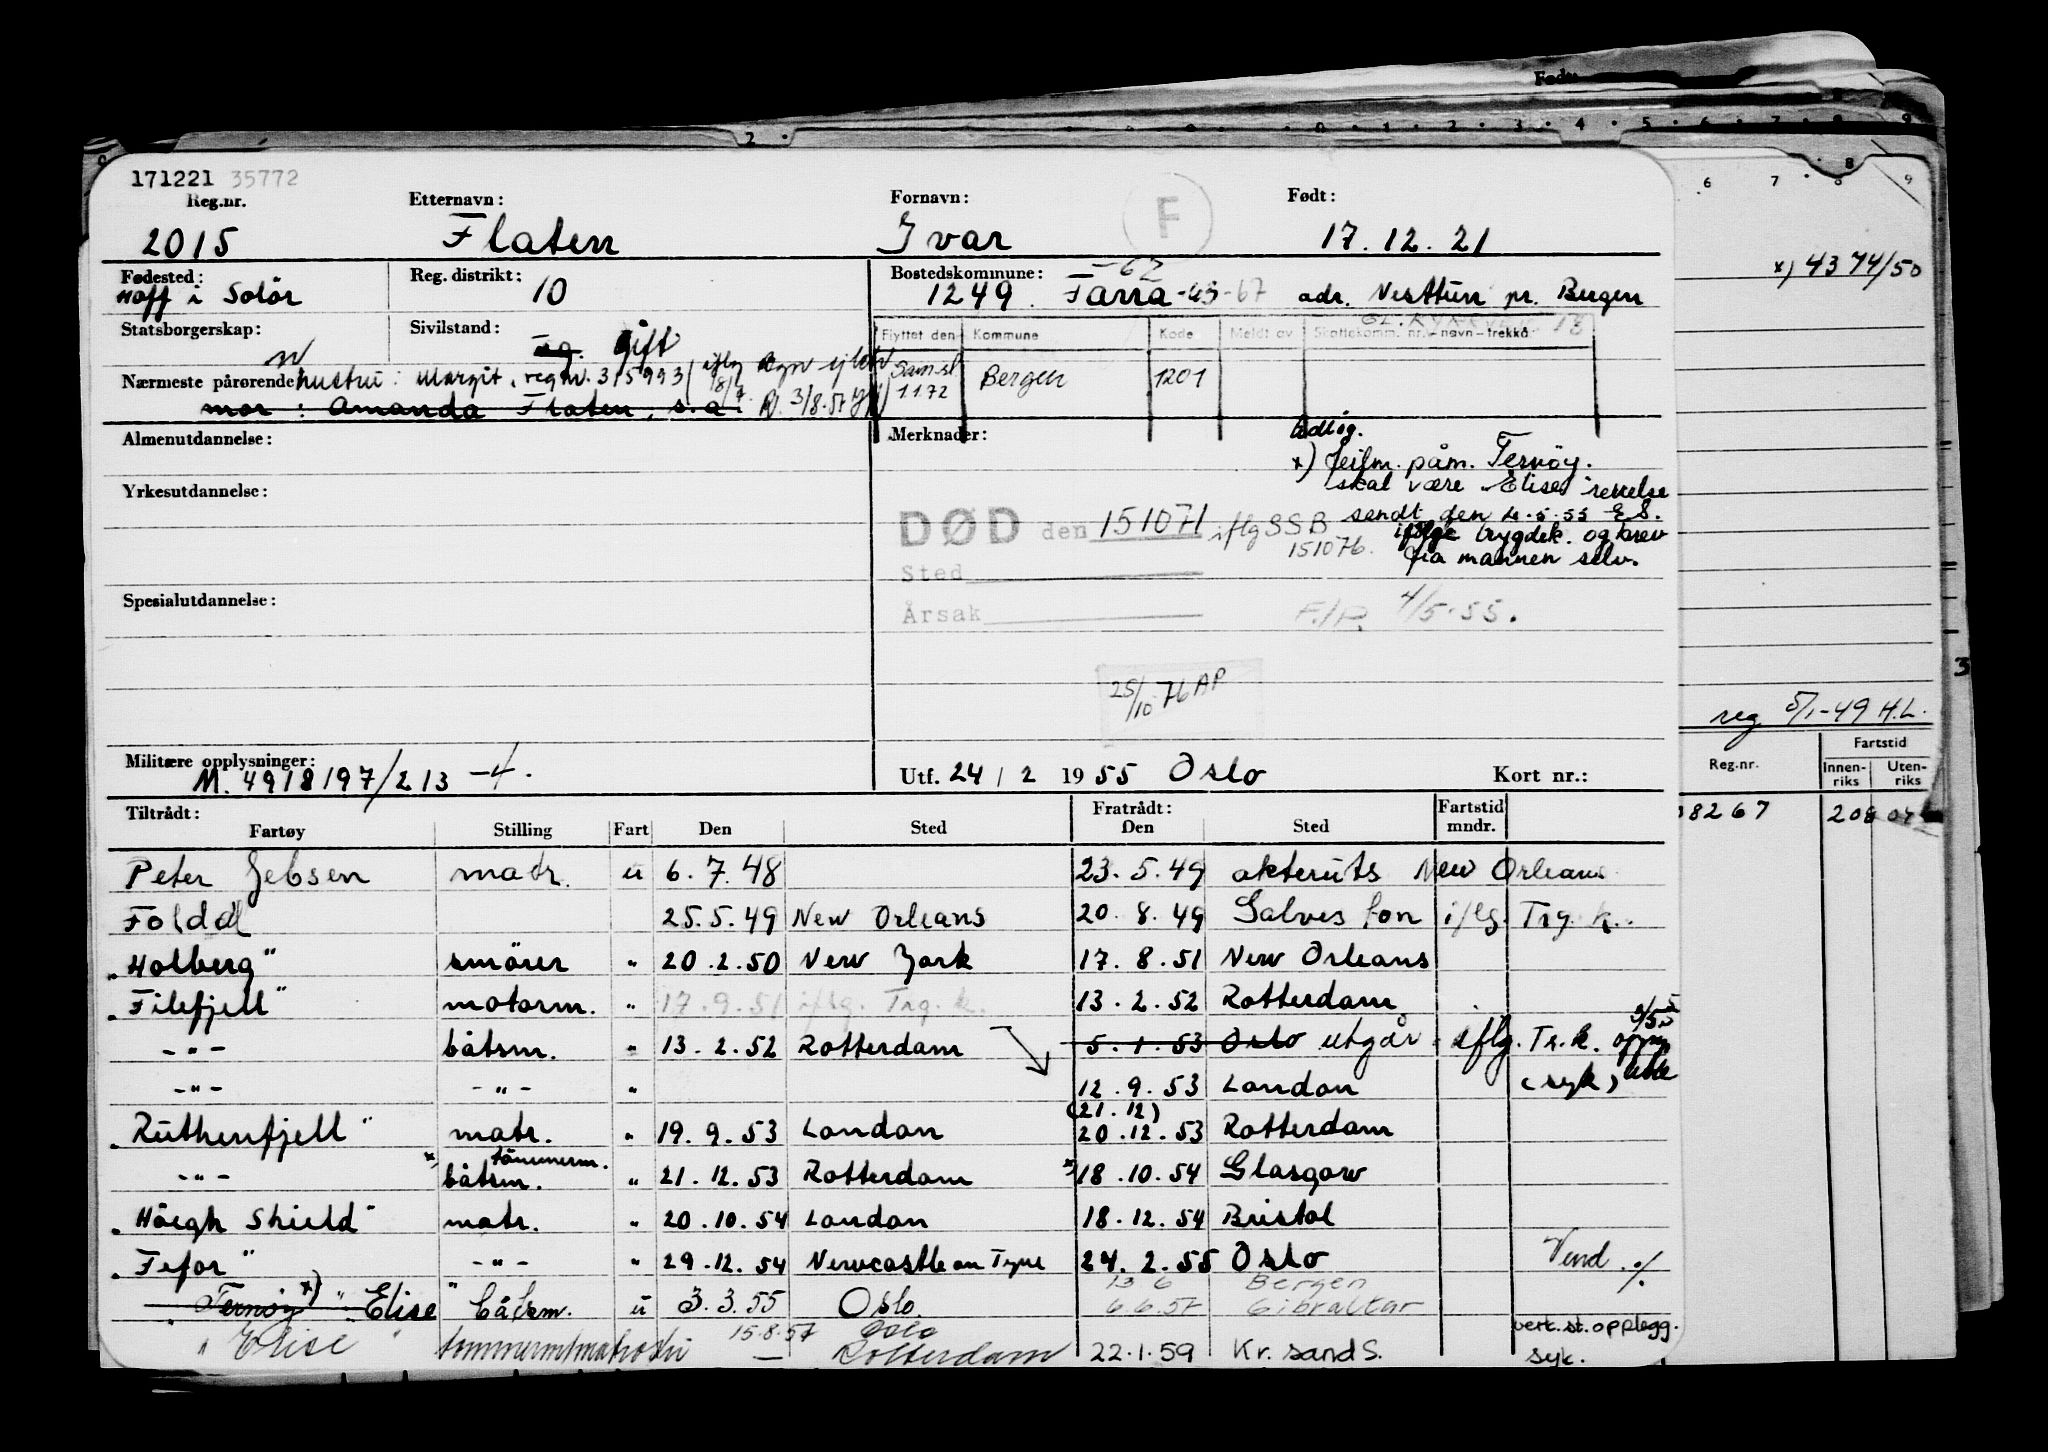 171221 35772
Reg.nr. Etternavn: Fornavn: F Født:
2015 Flaten Ivar 17.12.21
Fødested: Reg. distrikt: Bostedskommune: -62
Hoff i Solör 10 1249 Fana -43-67 adr. Nesttun pr. Bergen
Statsborgerskap: Sivilstand:
n ug. gift
Flyttet den Kommune Kode Meldt av Skattekomm. nr. navn-trekk%
Nærmeste pårørende hustru: Margit, reg nr. 315993
Saml 1172 Bergen 1201
mor: Amanda Flaten, s.a. 3/8.57
Almenutdannelse: Merknader:
x) feilm. påm. Ternöy.
skal være "Elise" rettelse
Yrkesutdannelse:
sendt den 4.5.55 E.S.
DØD den 151071 iflg SSB
151076. ifølge trygdek. og brev
fra mannen selv.
Sted
Spesialutdannelse:
Årsak
F./P. 4/5.55.
25/10 76 AP
Militære opplysninger:
M. 4918197/213 -4.
Utf. 24 / 2 1955 Oslo Kort nr.:
Tiltrådt: Fratrådt: Fartstid
Fartøy Stilling Fart Den Sted Den Sted mndr.
Peter Jebsen matr. u 6.7.48 23.5.49 akteruts New Orleans
Foldal 25.5.49 New Orleans 20.8.49 Galveston iflg. Trg.k.
"Holberg" smörer " 20.2.50 New York 17.8.51 New Orleans
"Filefjell" motorm. " 17.9.51 iflg. Trg.k. 13.2.52 Rotterdam
-"- båtsm. " 13.2.52 Rotterdam 5.1.53 Oslo utgår iflg. Tr.k.
-"- -"- " 12.9.53 London (syk)
(21.12)
"Ruthenfjell" matr. " 19.9.53 London 20.12.53 Rotterdam
tömmerm.
-"- x) båtsm. " 21.12.53 Rotterdam x) 18.10.54 Glasgow
"Höegh Shield" matr. " 20.10.54 London 18.12.54 Bristol
"Fefor" -"- " 29.12.54 Newcastle on Tyne 24.2.55 Oslo Vend ./.
13 6 Bergen
"Ternöy" x) "Elise" båtsm. u 3.3.55 Oslo 6.6.57 Gibraltar
15.8.57 Oslo
vert.st.opplegg.
"Elise" — Rotterdam 22.1.59 Kr. sand S. syk.
Født:
2 0 1 2 3 4 5 6 7 8 9
8
6 7 8 9
x) 4374/50
3
reg 5/1-49 H.L.
Fartstid
Reg.nr. Innenriks Utenriks
08267 208